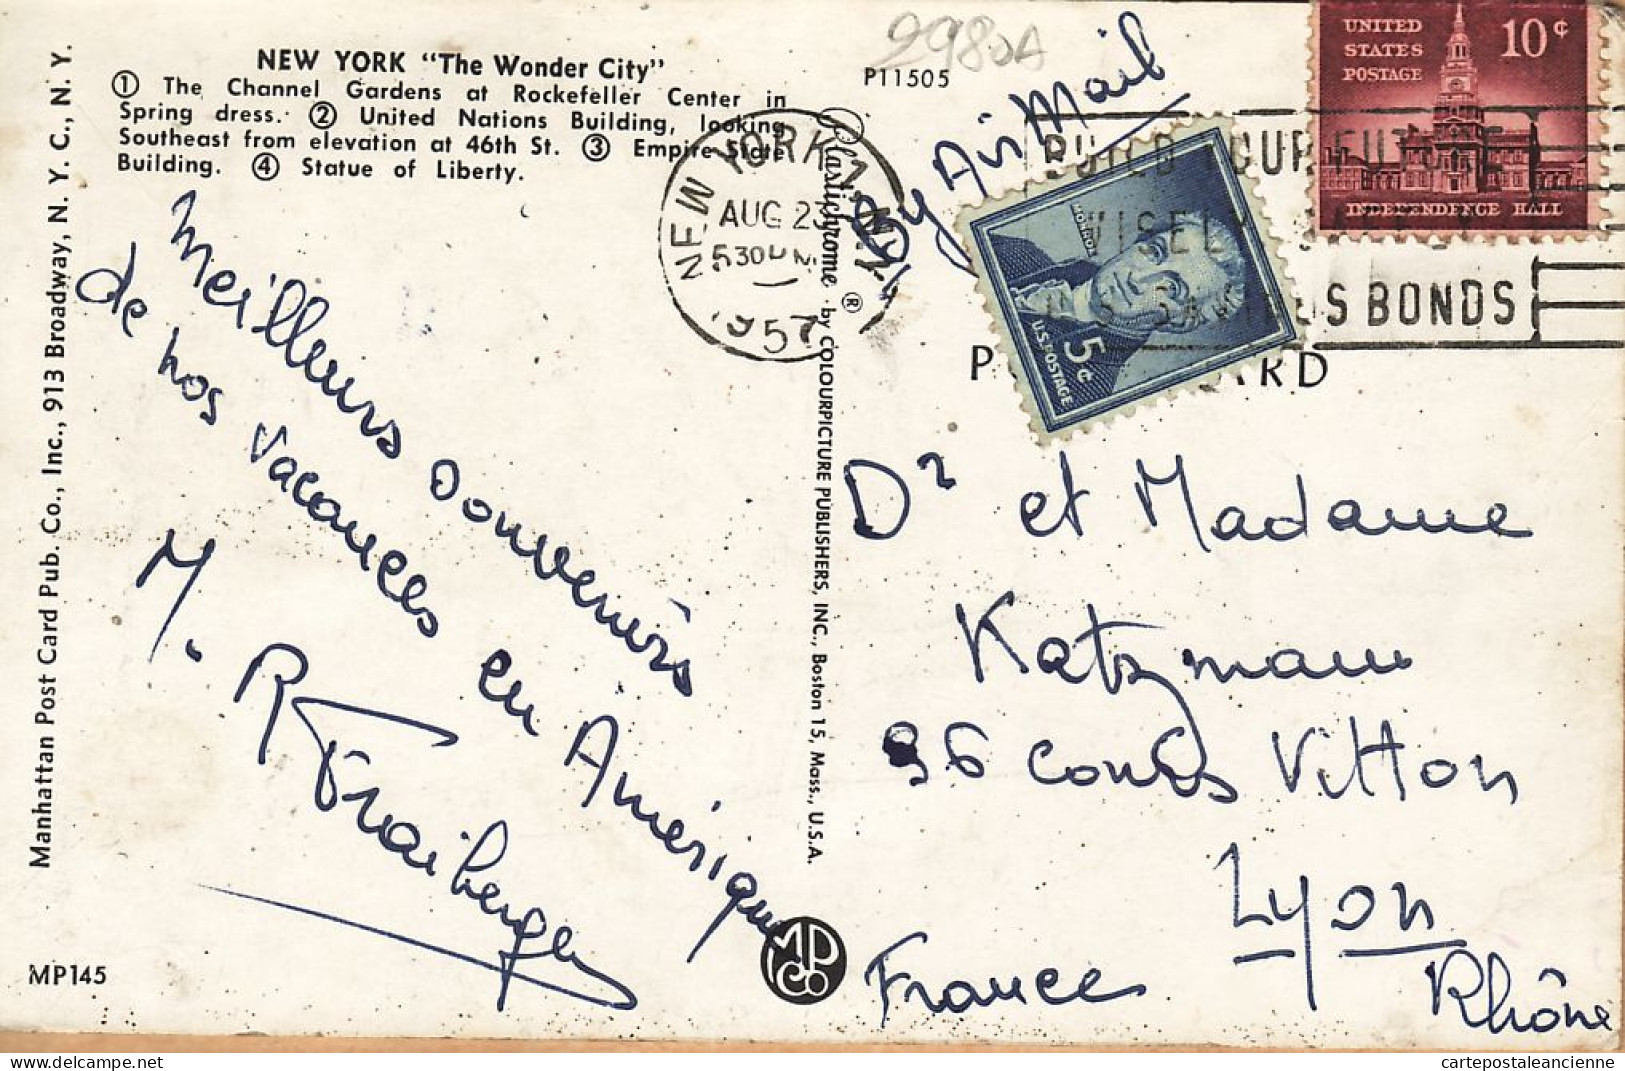 2980A
NEW YORK "The Wonder City"
① The Channel Gardens at Rockefeller Center in
Spring dress. ② United Nations Building, looking
Southeast from elevation at 46th St. ③ Empire State
Building. ④ Statue of Liberty.
P11505
By Air Mail
NEW YORK 1, N.Y.
AUG 23
530PM
1957
BUILD YOUR FUTURE
WISELY SAFELY
U.S. SAVINGS BONDS
UNITED
STATES
POSTAGE
10¢
INDEPENDENCE HALL
MONROE
5¢
U.S. POSTAGE
POST CARD
Meilleurs souvenirs
de nos vacances en Amérique
M. R Fraiberger
Dr et Madame
Katzmann
96 cours Vitton
Lyon
Rhône
France
Manhattan Post Card Pub. Co., Inc., 913 Broadway, N. Y. C., N. Y.
Plastichrome ® by COLOURPICTURE PUBLISHERS, INC., Boston 15, Mass., U.S.A.
MP145
MP Co
cartepostaleancienne